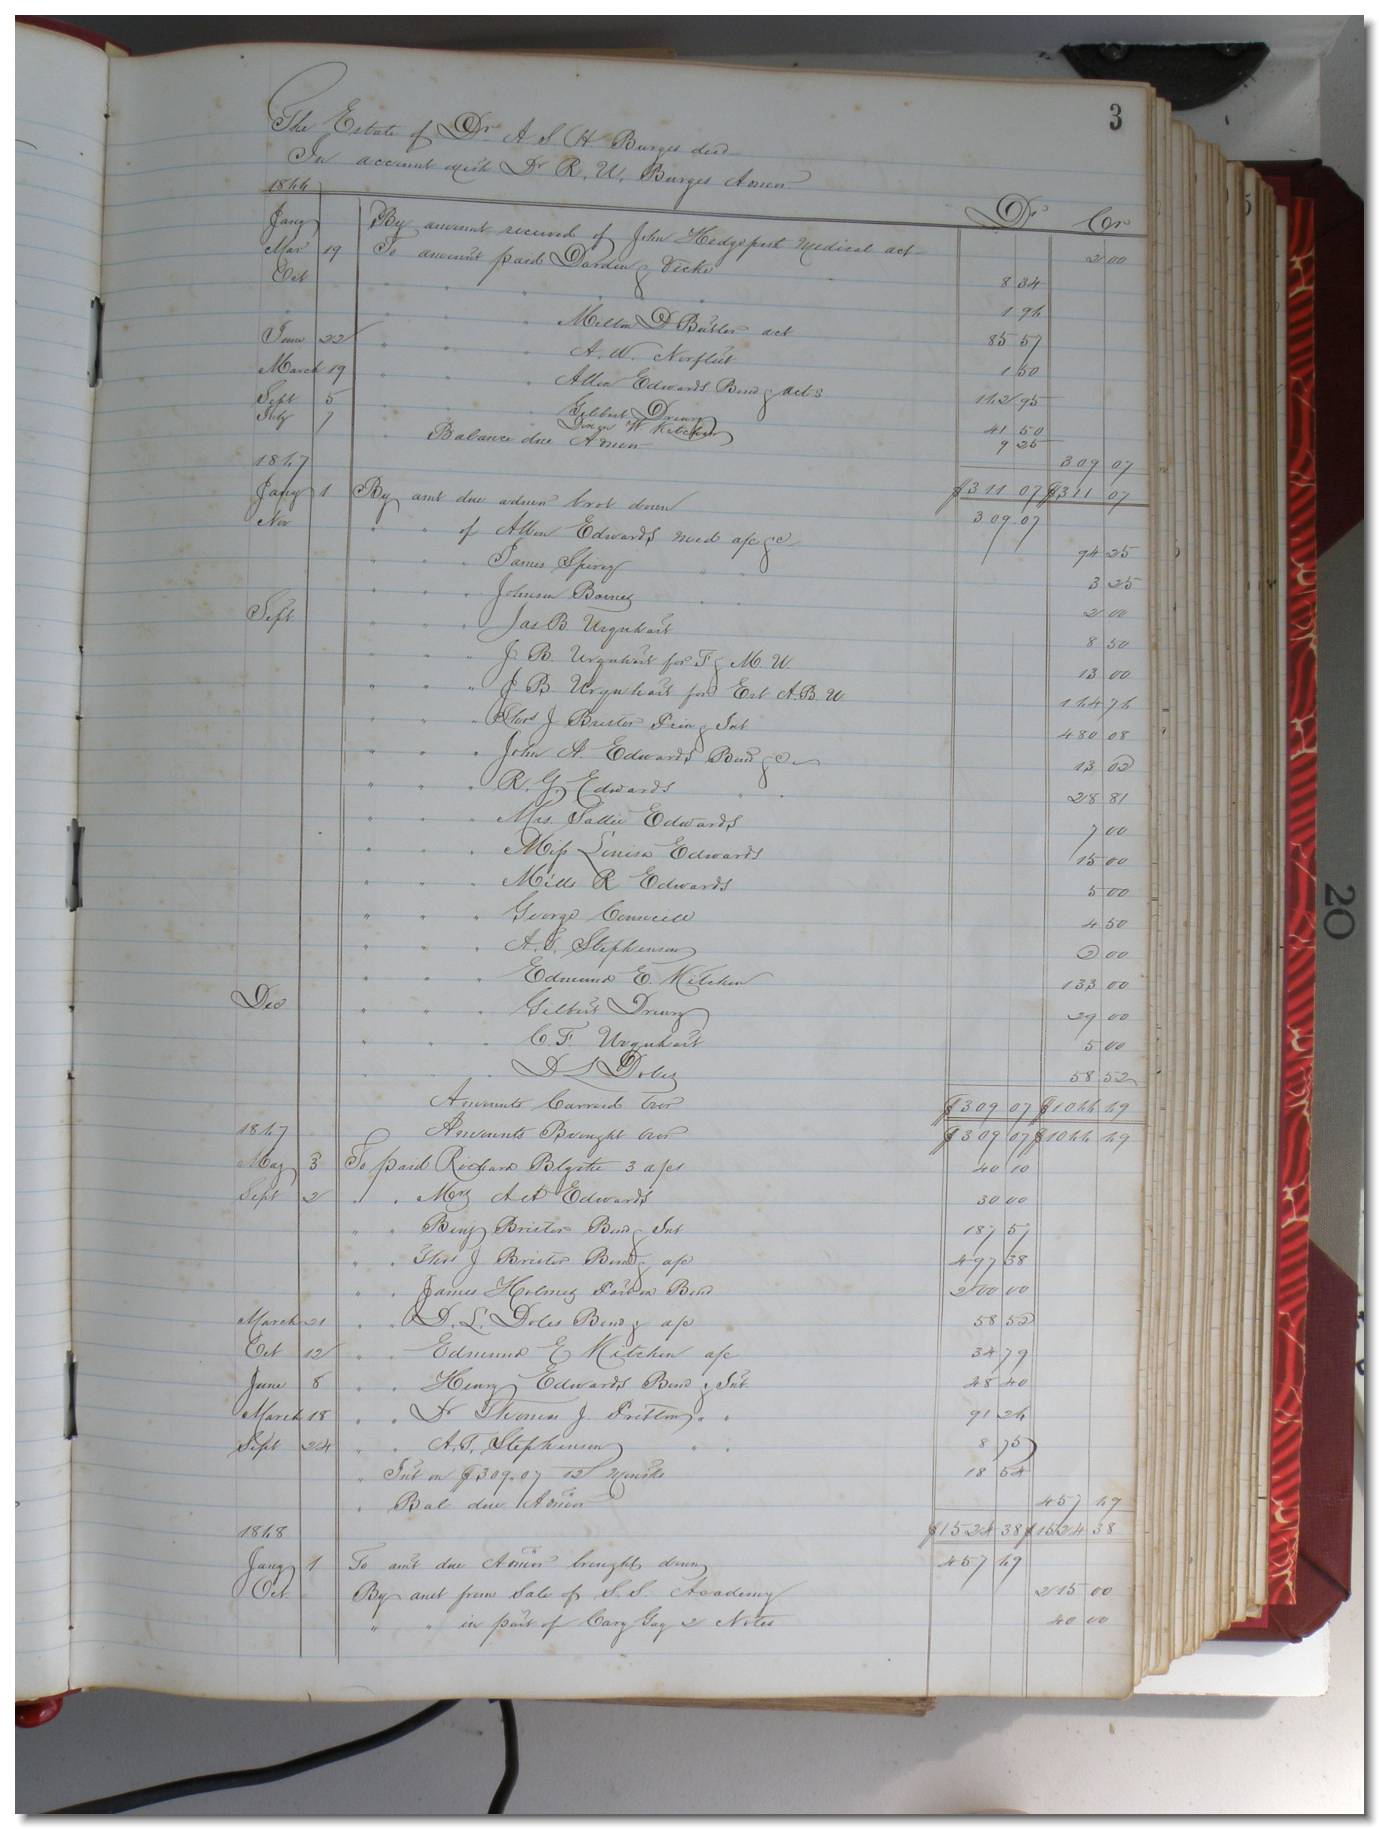 3
The Estate of Dr A S H Burges decd
In account with Dr R. W. Burges Admr
1866 Dr Cr
Jany By amount received of John Hedgepeth Medical act 2 00
Mar 19 To amount paid Darden & Ticke 8 34
Oct " " " " 1 96
" " " Milton D Butler act 85 57
June 22 " " " A. W. Norfleet 1 50
March 19 " " " Allen Edwards Bond & acts 162 95
Sept 5 " " Gilbert Drewry 41 50
July 7 W. Kitchen 9 25
Balance due Admr 309 07
1867 $311 07 $311 07
Jany 1 By amt due admr brot down 309 07
Nov " " of Allen Edwards med a/c &c 94 25
" " " James Spivey " " 3 25
" " " Johnson Barnes " " 2 00
Sept " " " Jas B. Urquhart 8 50
" " " J. B. Urquhart for T & M. W. 13 00
" " " J. B. Urquhart for Est A. B. U 164 76
" " " Thos J Brister Prin & Int 480 08
" " " John A. Edwards Bond &c 13 02
" " " R. G. Edwards " " 28 81
" " " Mrs. Sallie Edwards 7 00
" " " Miss Louisa Edwards 15 00
" " " Mills R Edwards 5 00
" " " George Council 4 50
" " " A. T. Stephenson 2 00
" " " Edmund E. Kitchen 133 00
Dec " " " Gilbert Drewry 29 00
" " " C. F. Urquhart 5 00
" " D L Doles 58 52
Amounts Carried Over $309 07 $1066 69
1867 Amounts Brought over $309 07 $1066 69
May 3 To paid Richard 3 a/cs 40 10
Sept 2 " " Mrs A A Edwards 30 00
" " Benj Brister Bond & Int 187 57
" " Thos J Brister Bond & a/c 497 38
" " James Holmes Part on Bond 200 00
March 21 " " D. L. Doles Bond & a/c 58 52
Oct 12 " " Edmund E Kitchen a/c 34 79
June 8 " " Henry Edwards Bond & Int 28 40
March 18 " " Dr Thomas J. Pretlow " " 91 26
Sept 24 " " A. T. Stephenson " " 8 75
" Int on $309.07 12 Months 18 54
" Bal due Admr 457 69
1868 $1524 38 $1524 38
Jany 1 To amt due Admr brought down 457 69
Oct. By amt from Sale of S. S. Academy 215 00
" " in part of Cary Gay 2 Notes 40 00
20
5